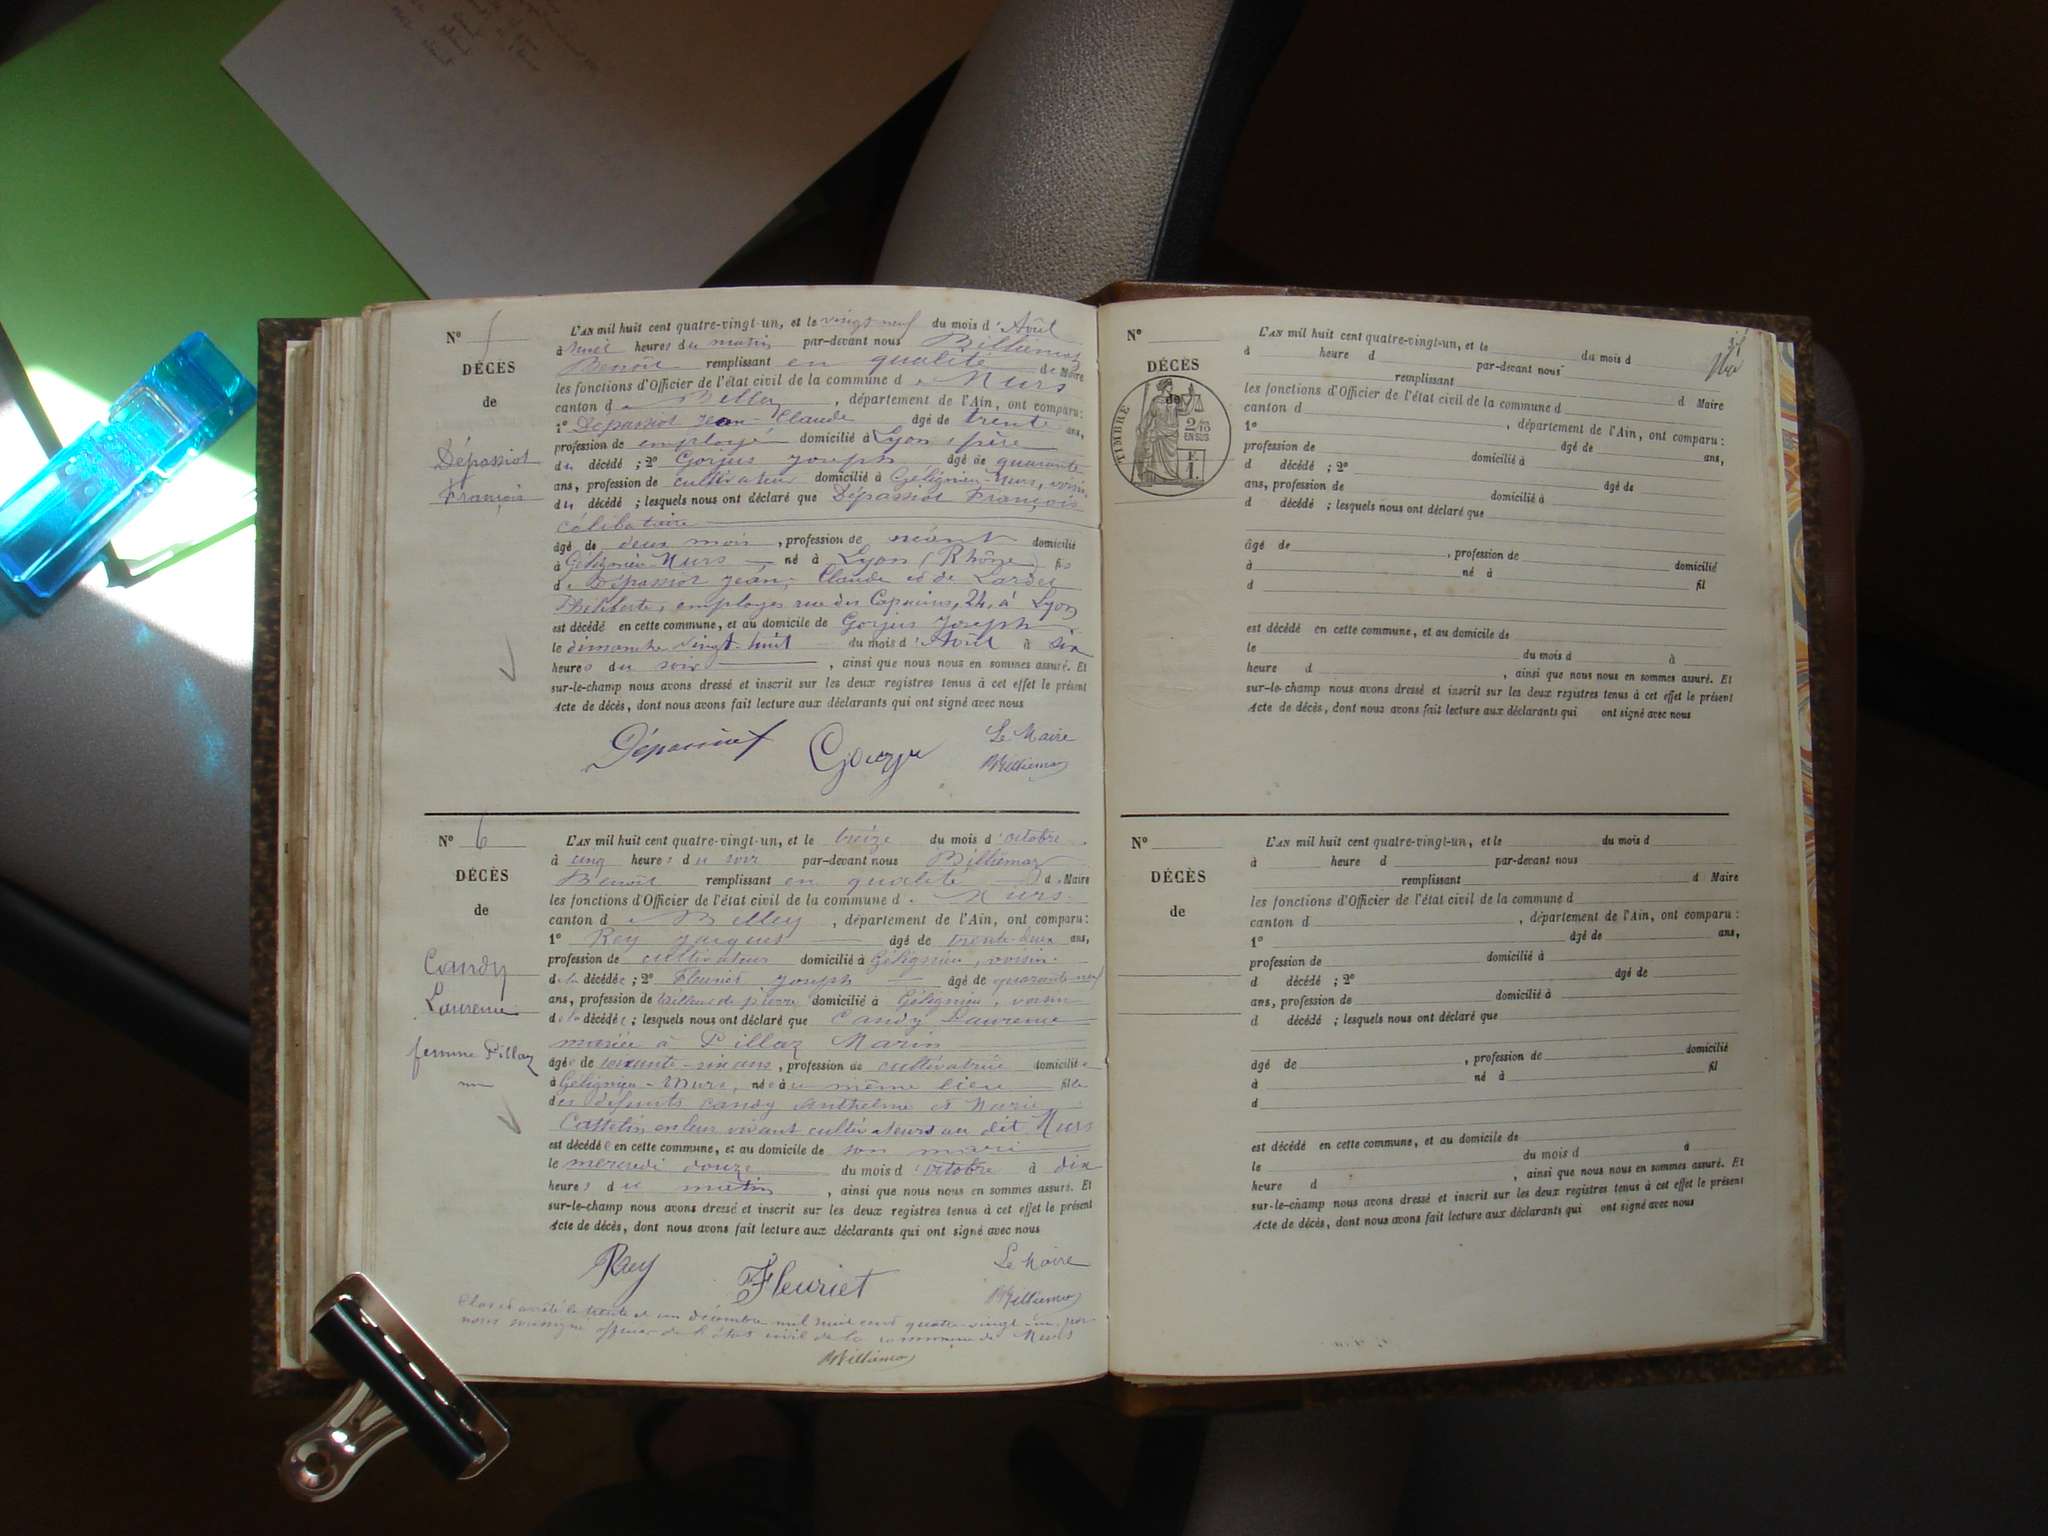 N° 5
DÉCÈS
de
Dépassiot
François
L'AN mil huit cent quatre-vingt-un, et le vingt neuf du mois d'Août
à heures du matin par-devant nous Billiemaz
Benoît remplissant en qualité de Maire
les fonctions d'Officier de l'état civil de la commune de Murs
canton de Belley, département de l'Ain, ont comparu :
1° Dépassiot Jean Claude âgé de trente ans,
profession de employé domicilié à Lyon, père
du décédé ; 2° Gorjus Joseph âgé de quarante
ans, profession de cultivateur domicilié à Gélignieu-Murs, voisin
du décédé ; lesquels nous ont déclaré que Dépassiot François
célibataire
âgé de deux mois, profession de néant domicilié
à Gélignieu-Murs né à Lyon (Rhône) fils
de Dépassiot Jean, Claude et de Lardet
Philiberte, employés rue des Capucins, 24, à Lyon
est décédé en cette commune, et au domicile de Gorjus Joseph
le dimanche vingt-huit du mois d'Août à six
heures du soir, ainsi que nous nous en sommes assuré. Et
sur-le-champ nous avons dressé et inscrit sur les deux registres tenus à cet effet le présent
Acte de décès, dont nous avons fait lecture aux déclarants qui ont signé avec nous
Dépassiot Le Maire
Billiemaz
N° 6
DÉCÈS
de
Candy
Laurence
femme Pillaz
L'AN mil huit cent quatre-vingt-un, et le treize du mois d'octobre
à cinq heures du soir par-devant nous Billiemaz
Benoît remplissant en qualité d Maire
les fonctions d'Officier de l'état civil de la commune de Murs
canton de Belley, département de l'Ain, ont comparu :
1° Rey Jacques âgé de trente-deux ans,
profession de cultivateur domicilié à Gélignieu, voisin
de la décédée ; 2° Fleuriet Joseph âgé de quarante-neuf
ans, profession de tailleur de pierre domicilié à Gélignieu, voisin
de la décédée ; lesquels nous ont déclaré que Candy Laurence
mariée à Pillaz Marin
âgée de soixante-six ans, profession de cultivatrice domiciliée
à Gélignieu-Murs, née à u même lieu fille
des défunts Candy Anthelme et Marie
Castelin en leur vivant cultivateurs au dit Murs
est décédée en cette commune, et au domicile de son mari
le mercredi douze du mois d'octobre à dix
heures du matin, ainsi que nous nous en sommes assuré. Et
sur-le-champ nous avons dressé et inscrit sur les deux registres tenus à cet effet le présent
Acte de décès, dont nous avons fait lecture aux déclarants qui ont signé avec nous
Rey Fleuriet Le Maire
Billiemaz
Clos et arrêté le trente et un décembre mil huit cent quatre-vingt-un, par
nous soussigné officier de l'état civil de la commune de Murs
Billiemaz
N°
DÉCÈS
de
TIMBRE
2/10
EN SUS
F.
1.
L'AN mil huit cent quatre-vingt-un, et le du mois d
à heure d par-devant nous
remplissant d Maire
les fonctions d'Officier de l'état civil de la commune d
canton d , département de l'Ain, ont comparu :
1° âgé de ans,
profession de domicilié à
d décédé ; 2° âgé de
ans, profession de domicilié à
d décédé ; lesquels nous ont déclaré que
âgé de , profession de domicilié
à né à fil
d
est décédé en cette commune, et au domicile de
le du mois d à
heure d , ainsi que nous nous en sommes assuré. Et
sur-le-champ nous avons dressé et inscrit sur les deux registres tenus à cet effet le présent
Acte de décès, dont nous avons fait lecture aux déclarants qui ont signé avec nous
N°
DÉCÈS
de
L'AN mil huit cent quatre-vingt-un, et le du mois d
à heure d par-devant nous
remplissant d Maire
les fonctions d'Officier de l'état civil de la commune d
canton d , département de l'Ain, ont comparu :
1° âgé de ans,
profession de domicilié à
d décédé ; 2° âgé de
ans, profession de domicilié à
d décédé ; lesquels nous ont déclaré que
âgé de , profession de domicilié
à né à fil
d
est décédé en cette commune, et au domicile de
le du mois d à
heure d , ainsi que nous nous en sommes assuré. Et
sur-le-champ nous avons dressé et inscrit sur les deux registres tenus à cet effet le présent
Acte de décès, dont nous avons fait lecture aux déclarants qui ont signé avec nous